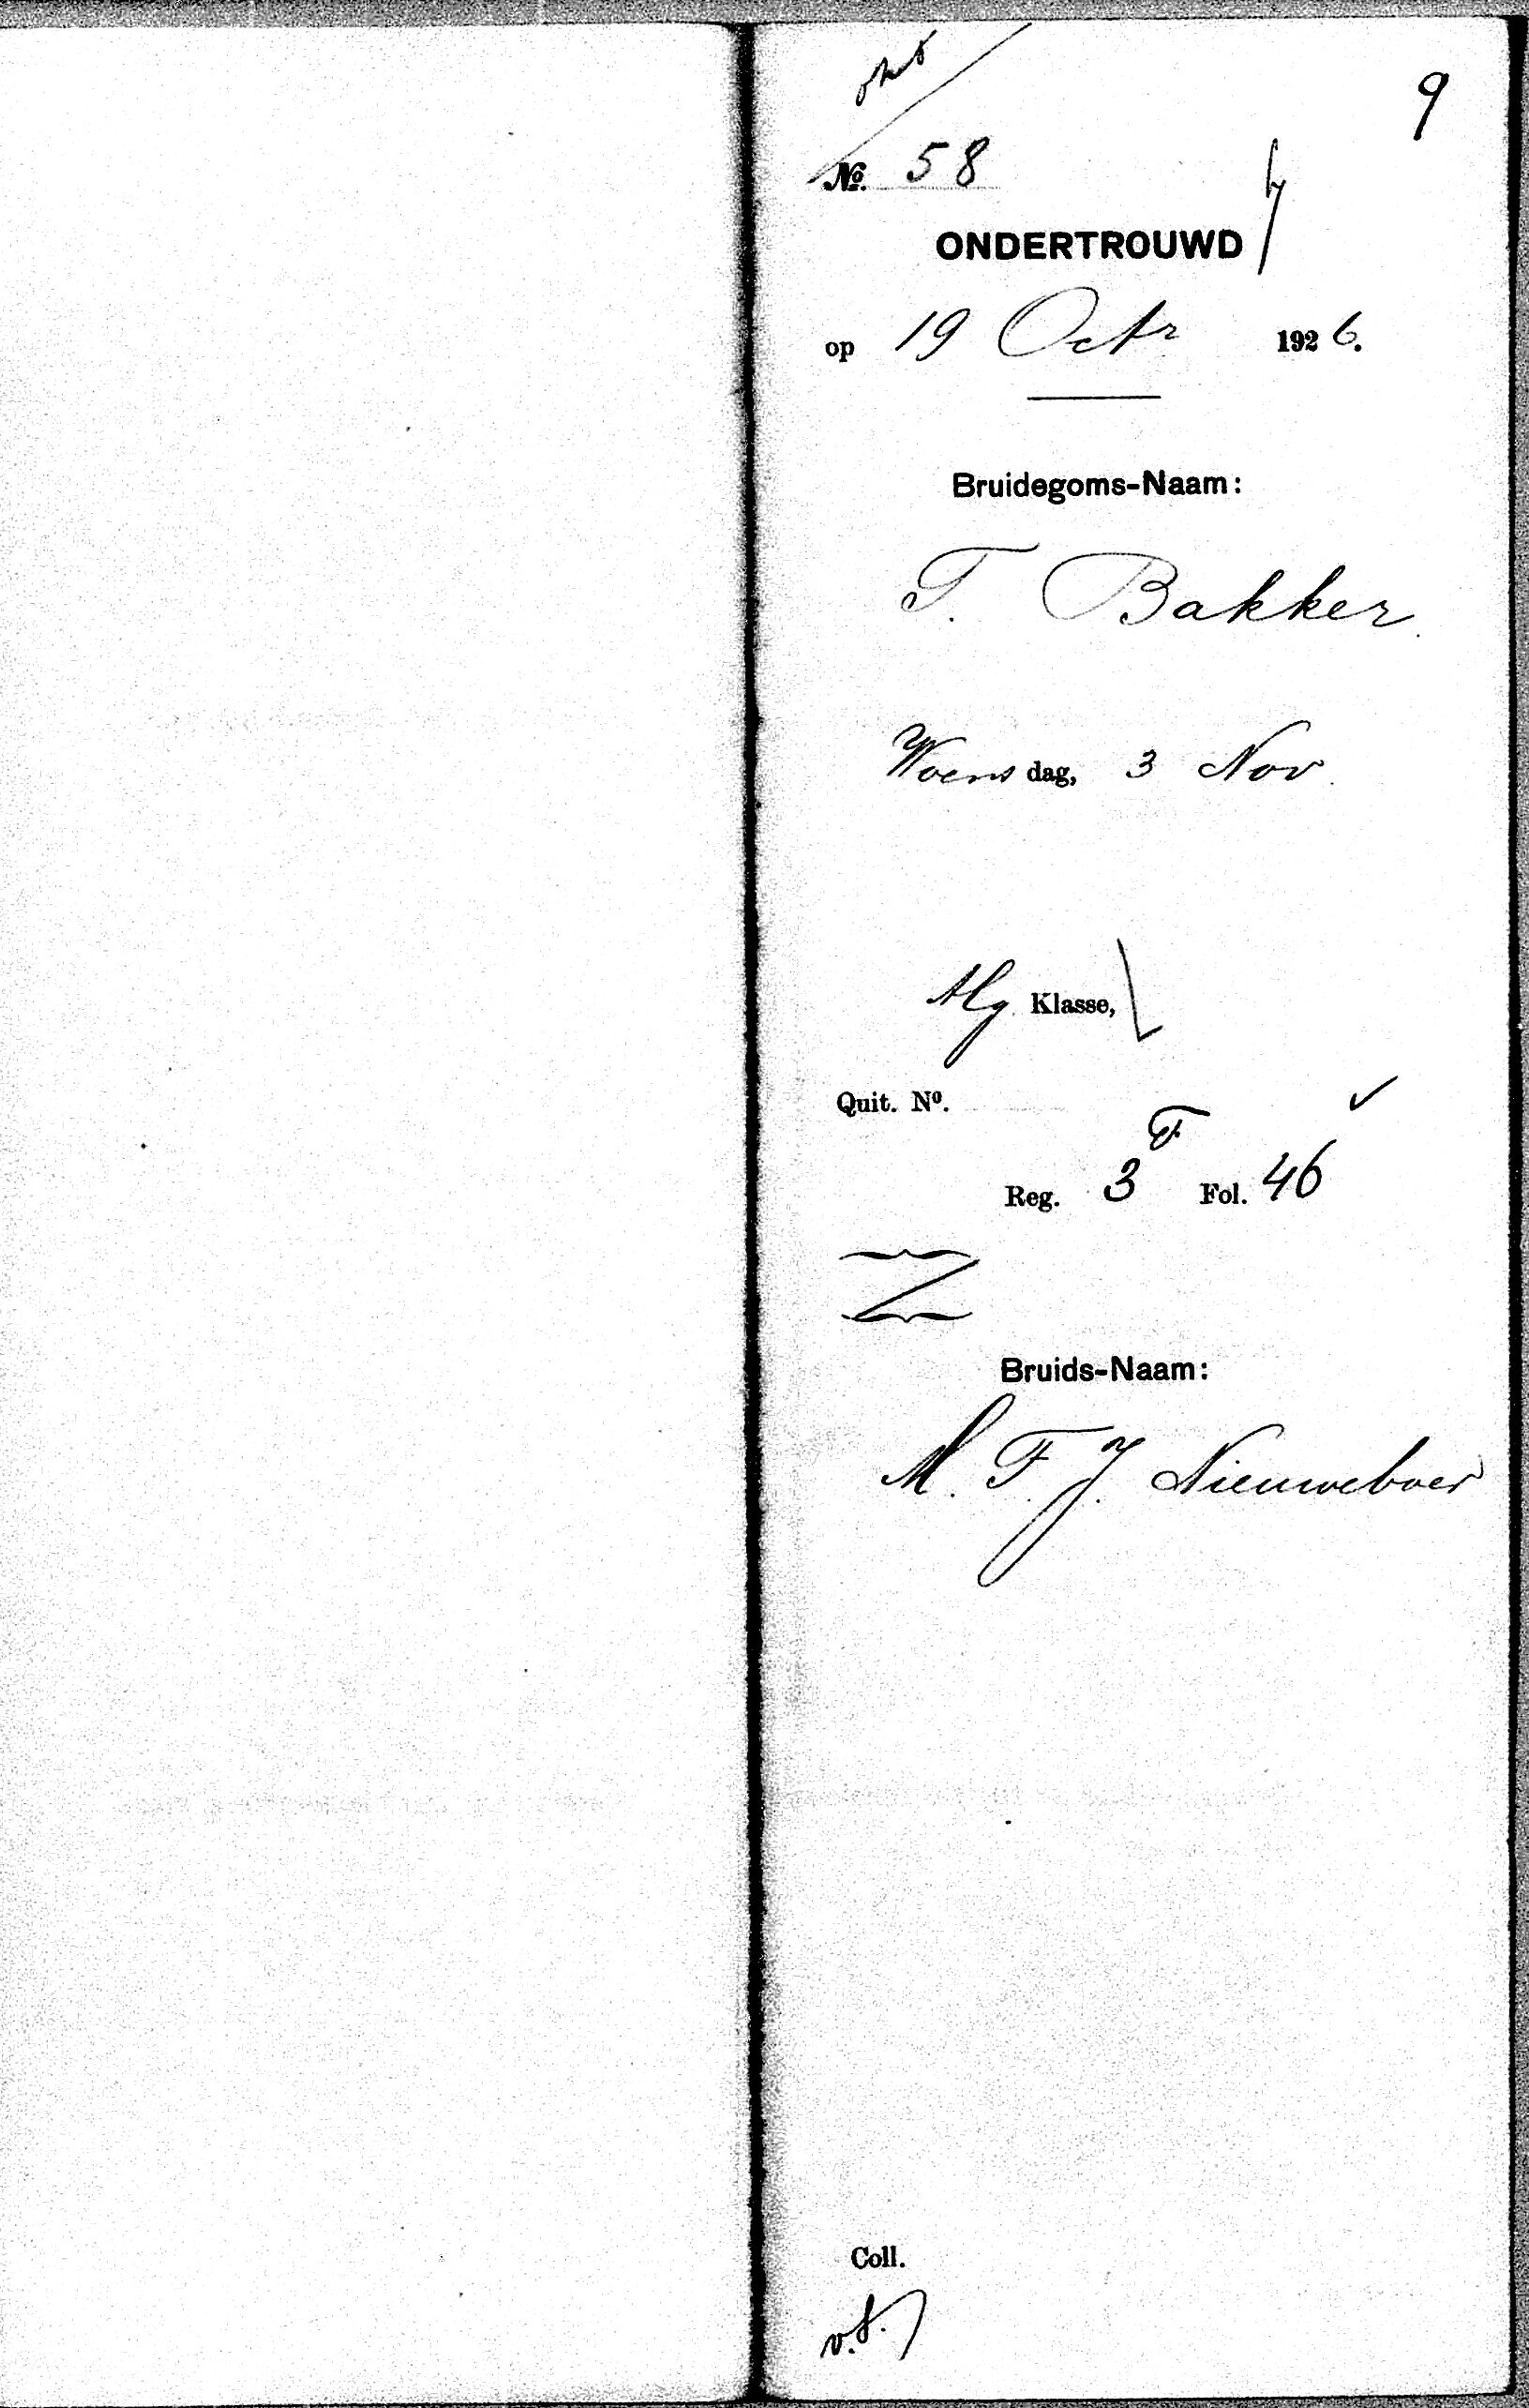 9
No. 58
ONDERTROUWD
op 19 Octr 1926.
Bruidegoms-Naam:
T. Bakker.
Woensdag, 3 Nov.
Alg. Klasse,
Quit. No.
Reg. 3F Fol. 46
Bruids-Naam:
M. F. J. Nieuweboer
Coll.